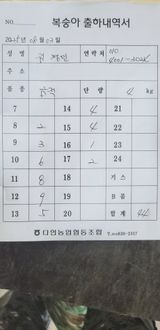 NO. 복숭아 출하내역서
2025년 08월 02일
성명 연락처 010
주소
품종 단량 4 kg
7 14 4 21
8 2 15 4 22
9 3 16 1 23
10 6 17 2 24
11 8 18 기스
12 9 19 B품
13 5 20 합계 44
다인농업협동조합